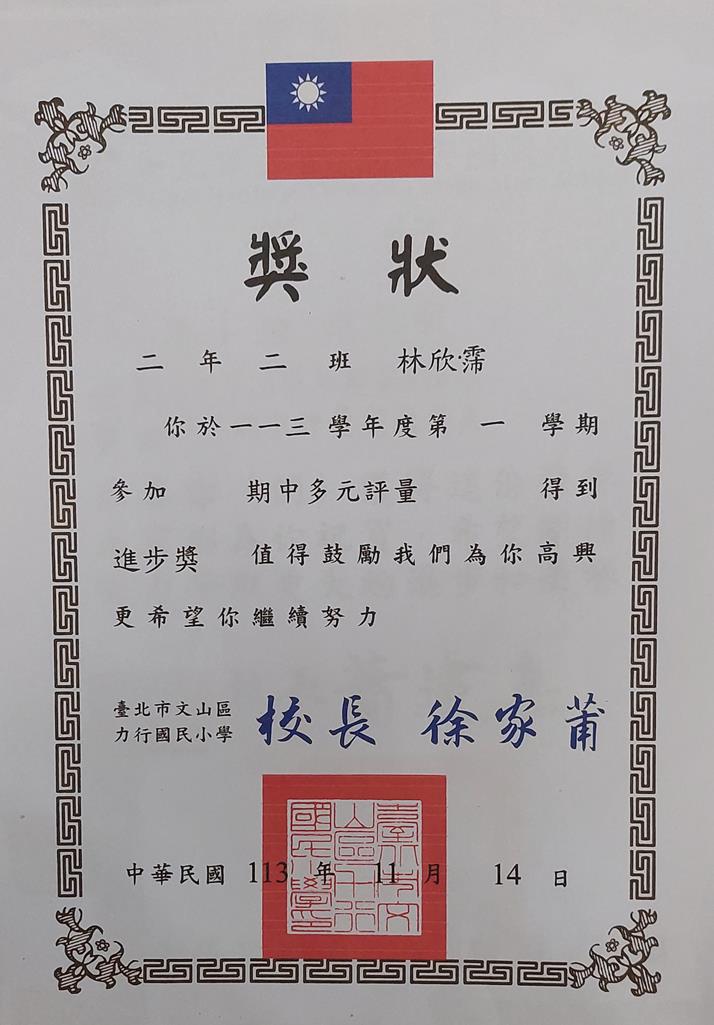 獎狀
二年二班 林欣霈
你於一一三學年度第一學期
參加 期中多元評量 得到
進步獎 值得鼓勵我們為你高興
更希望你繼續努力
臺北市文山區
力行國民小學
校長 徐家莆
中華民國 113 年 11 月 14 日
臺北市文山區力行國民小學印